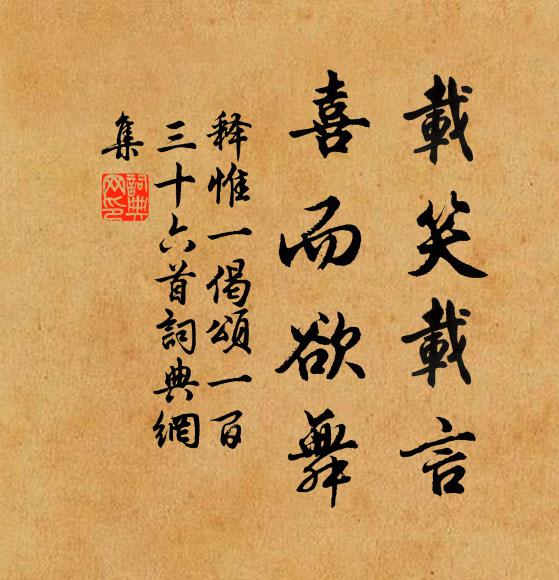 載笑載言
喜而欲舞
释惟一偈頌一百
三十六首詞典網
集
詞典網印